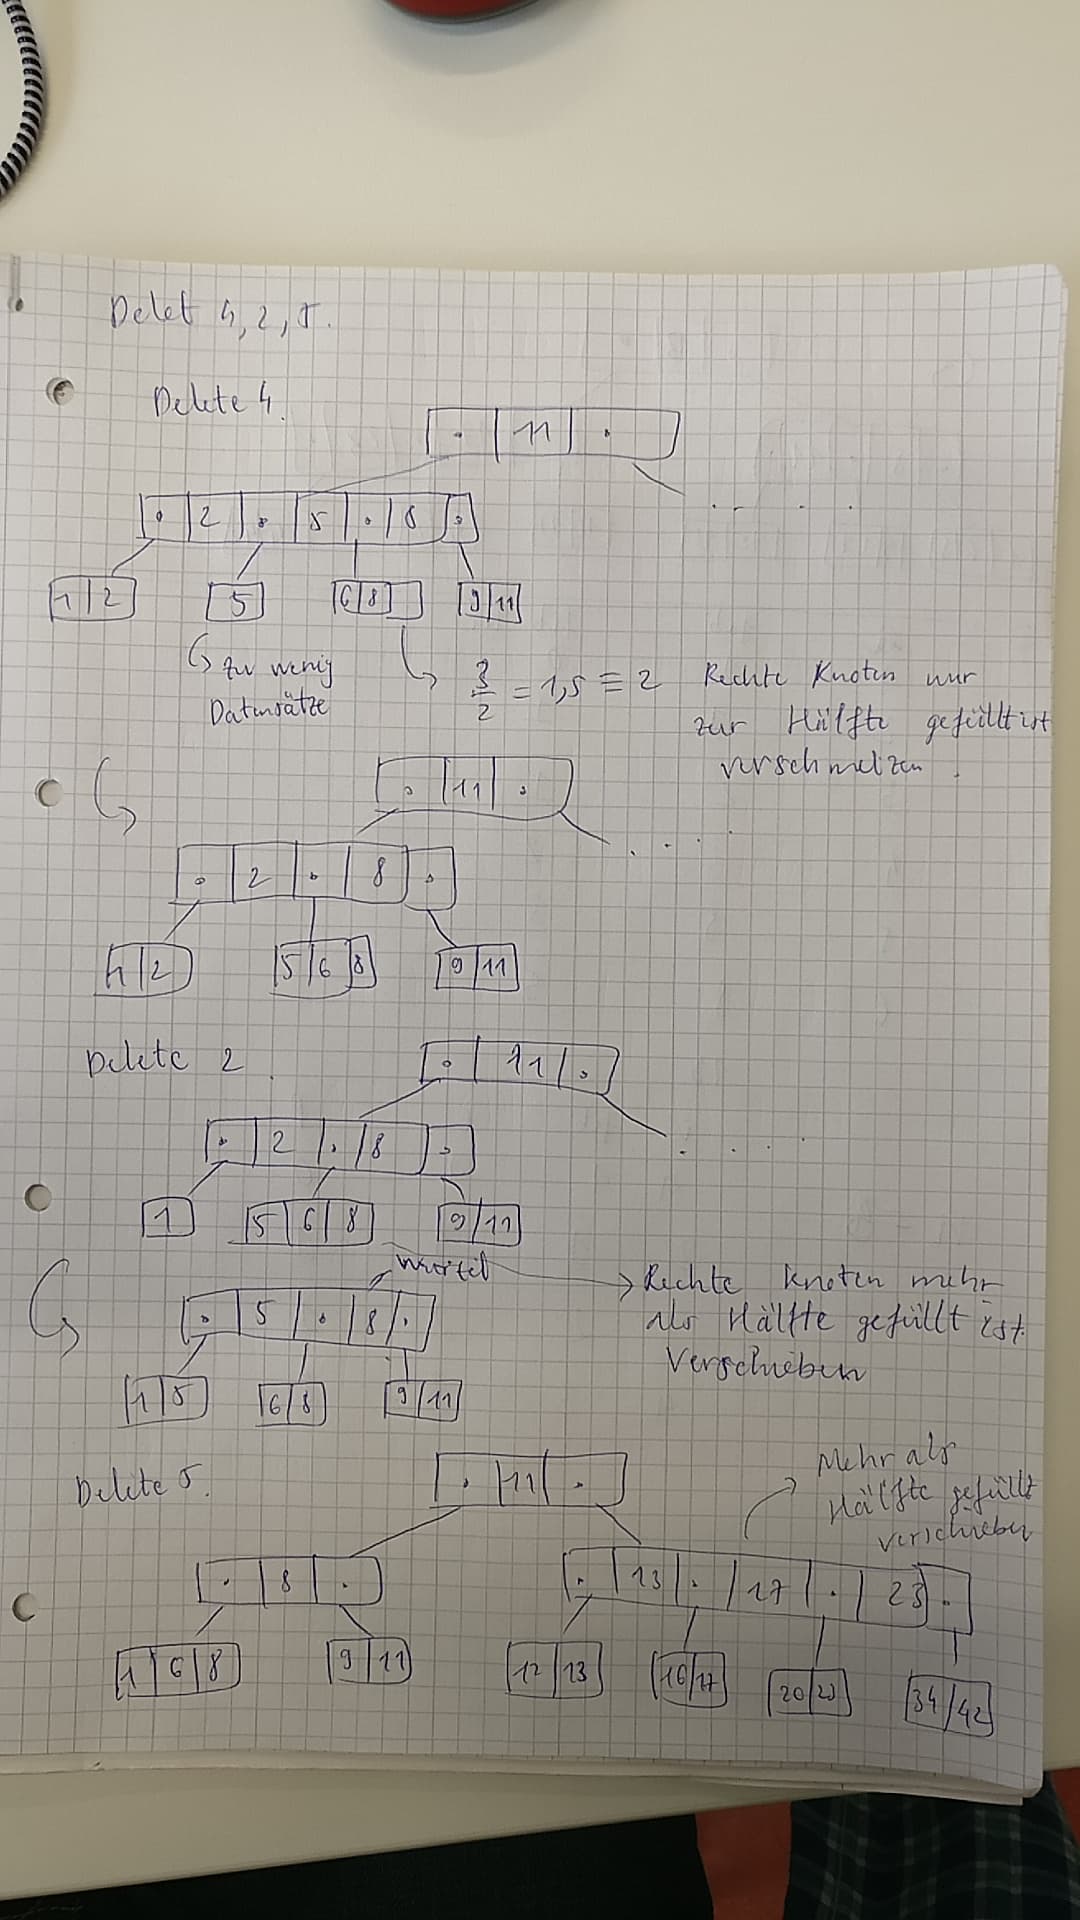 Delet 4, 2, 5.
Delete 4.
. | 11 | .
. | 2 | . | 5 | . | 8 | .
1 | 2
5
6 | 8
9 | 11
zu wenig
Datensätze
3/2 = 1,5 ≡ 2
Rechte Knoten nur
zur Hälfte gefüllt ist
verschmelzen.
. | 11 | .
. | 2 | . | 8 | .
1 | 2
5 | 6 | 8
9 | 11
Delete 2.
. | 11 | .
. | 2 | . | 8 | .
1
5 | 6 | 8
9 | 11
Rechte Knoten mehr
als Hälfte gefüllt ist.
Verschieben
. | 5 | . | 8 | .
1 | 5
6 | 8
9 | 11
Delete 5.
. | 11 | .
Mehr als
Hälfte gefüllt
verschieben
. | 8 | .
. | 13 | . | 17 | . | 23 | .
1 | 6 | 8
9 | 11
12 | 13
16 | 17
20 | 23
34 | 42